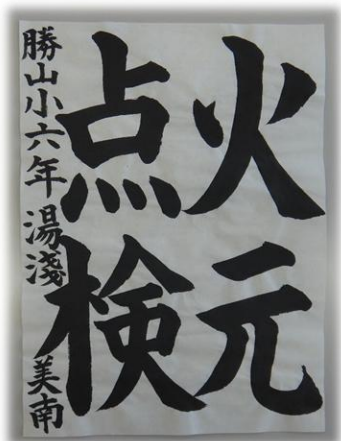 火元
点検
勝山小六年 湯淺 美南